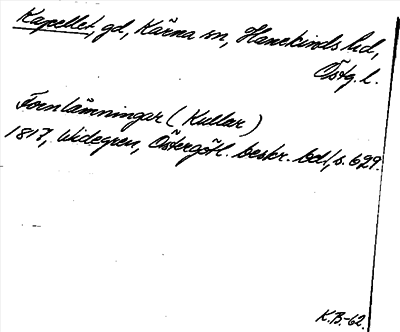 Kapellet, gd, Kärna sn, Hanekinds hd,
Östg. l.
Fornlämningar (Kullar)
1817, Widegren, Östergötl. beskr. bd 1, s. 629.
K.B.-62.